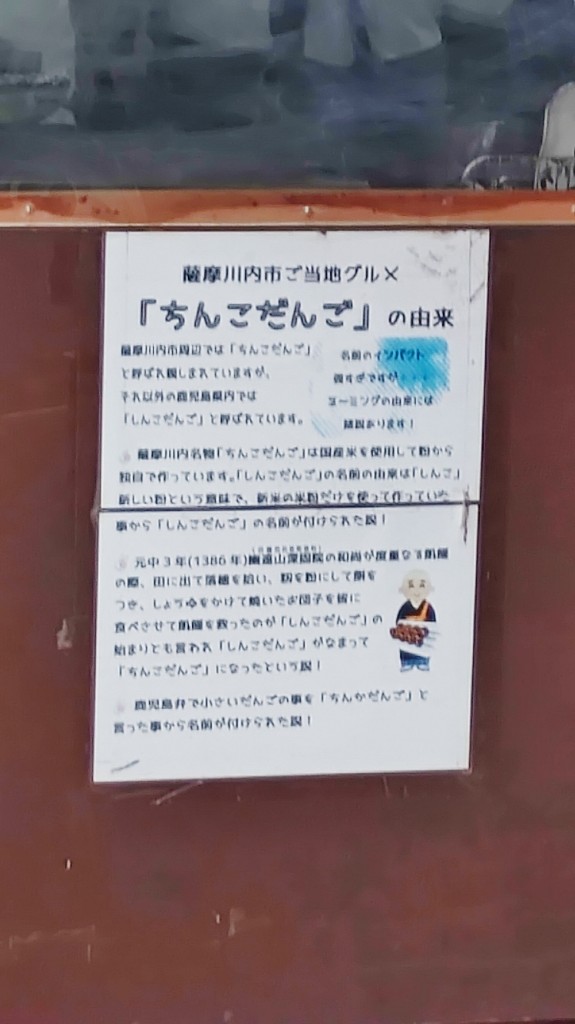 薩摩川内市ご当地グルメ
『ちんこだんご』の由来
薩摩川内市周辺では「ちんこだんご」
と呼ばれ親しまれていますが、
それ以外の鹿児島県内では
「しんこだんご」と呼ばれています。
名前のインパクト
強すぎですが・・・
ネーミングの由来には
諸説あります！
薩摩川内名物「ちんこだんご」は国産米を使用して粉から
独自で作っています。「しんこだんご」の名前の由来は「しんこ」
新しい粉という意味で、新米の米粉だけを使って作っていた
事から「しんこだんご」の名前が付けられた説！
元中3年(1386年)幽遠山深固院の和尚が度重なる飢饉
の際、田に出て落穂を拾い、籾を粉にして餅を
つき、しょうゆをかけて焼いたお団子を皆に
食べさせて飢饉を救ったのが「しんこだんご」の
始まりとも言われ「しんこだんご」がなまって
「ちんこだんご」になったという説！
鹿児島弁で小さいだんごの事を「ちんかだんご」と
言った事から名前が付けられた説！